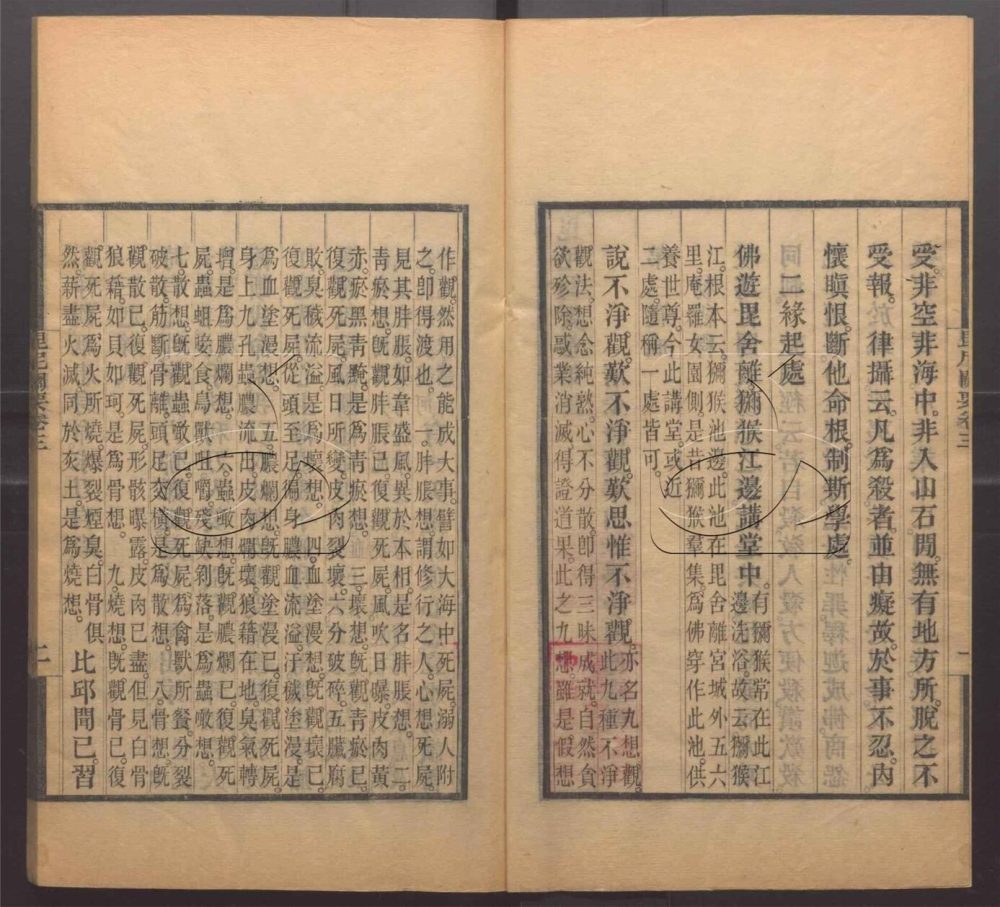 受。非空非海中。非入山石間。無有地方所。脫之不
受報。於律攝云。凡爲殺者。並由癡故。於事不忍。內
懷瞋恨。斷他命根。制斯學處。
二緣起處
佛遊毘舍離獼猴江邊講堂中。
有獼猴常在此江
邊洗浴。故云獼猴
江。根本云。獼猴池邊。此池在毘舍離宮城外五六
里。庵羅女園側。是昔獼猴羣集。爲佛穿作此池。供
養世尊。今此講堂。或近
二處。隨稱一處皆可。
說不淨觀。歎不淨觀。歎思惟不淨觀。
亦名九想觀。
此九種不淨
觀法。想念純熟。心不分散。卽得三昧成就。自然貪
欲殄除。惑業消滅。得證道果。此之九想。雖是假想
一
作觀。然用之能成大事。譬如大海中死屍。溺人附
之。卽得渡也。一。胖脹想。謂修行之人。心想死屍。
見其胖脹。如韋盛風。異於本相。是名胖脹想。二。
青瘀想。旣觀胖脹已。復觀死屍。風吹日曝。皮肉黃
赤。瘀黑青黤。是爲青瘀想。三。壞想。旣觀青瘀已。
復觀死屍。風日所變。皮肉裂壞。六分破碎。五臟腐
敗。臭穢流溢。是爲壞想。四。血塗漫想。旣觀壞已。
復觀死屍。從頭至足。徧身膿血流溢。汙穢塗漫。是
爲血塗漫想。五。膿爛想。旣觀塗漫已。復觀死屍。
身上九孔。蟲膿流出。皮肉爛壞。狼藉在地。臭氣轉
增。是爲膿爛想。六。蟲噉想。旣觀膿爛已。復觀死
屍。蟲蛆唼食。鳥獸咀嚼。殘缺剝落。是爲蟲噉想。
七。散想。旣觀蟲噉已。復觀死屍。爲禽獸所餐。分裂
破散。筋斷骨離。頭足交橫。是爲散想。八。骨想。旣
觀散已。復觀死屍。形骸曝露。皮肉已盡。但見白骨
狼藉。如貝如珂。是爲骨想。九。燒想。旣觀骨已。復
觀死屍。爲火所燒。爆裂煙臭。白骨俱
然。薪盡火滅。同於灰土。是爲燒想。
比邱聞已習
二